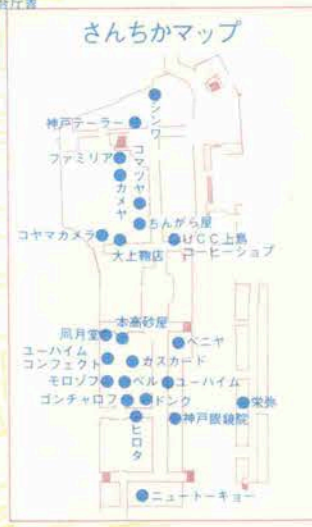 さんちかマップ
シンワ
神戸テーラー
ファミリア
コマツヤ
カメヤ
ちんがら屋
コヤマカメラ
大上鞄店
UCC上島
コーヒーショップ
本高砂屋
風月堂
ベニヤ
ユーハイム
コンフェクト
カスカード
モロゾフ
ベル
ユーハイム
ゴンチャロフ
ドンク
栄弥
ヒロタ
神戸眼鏡院
ニュートーキョー